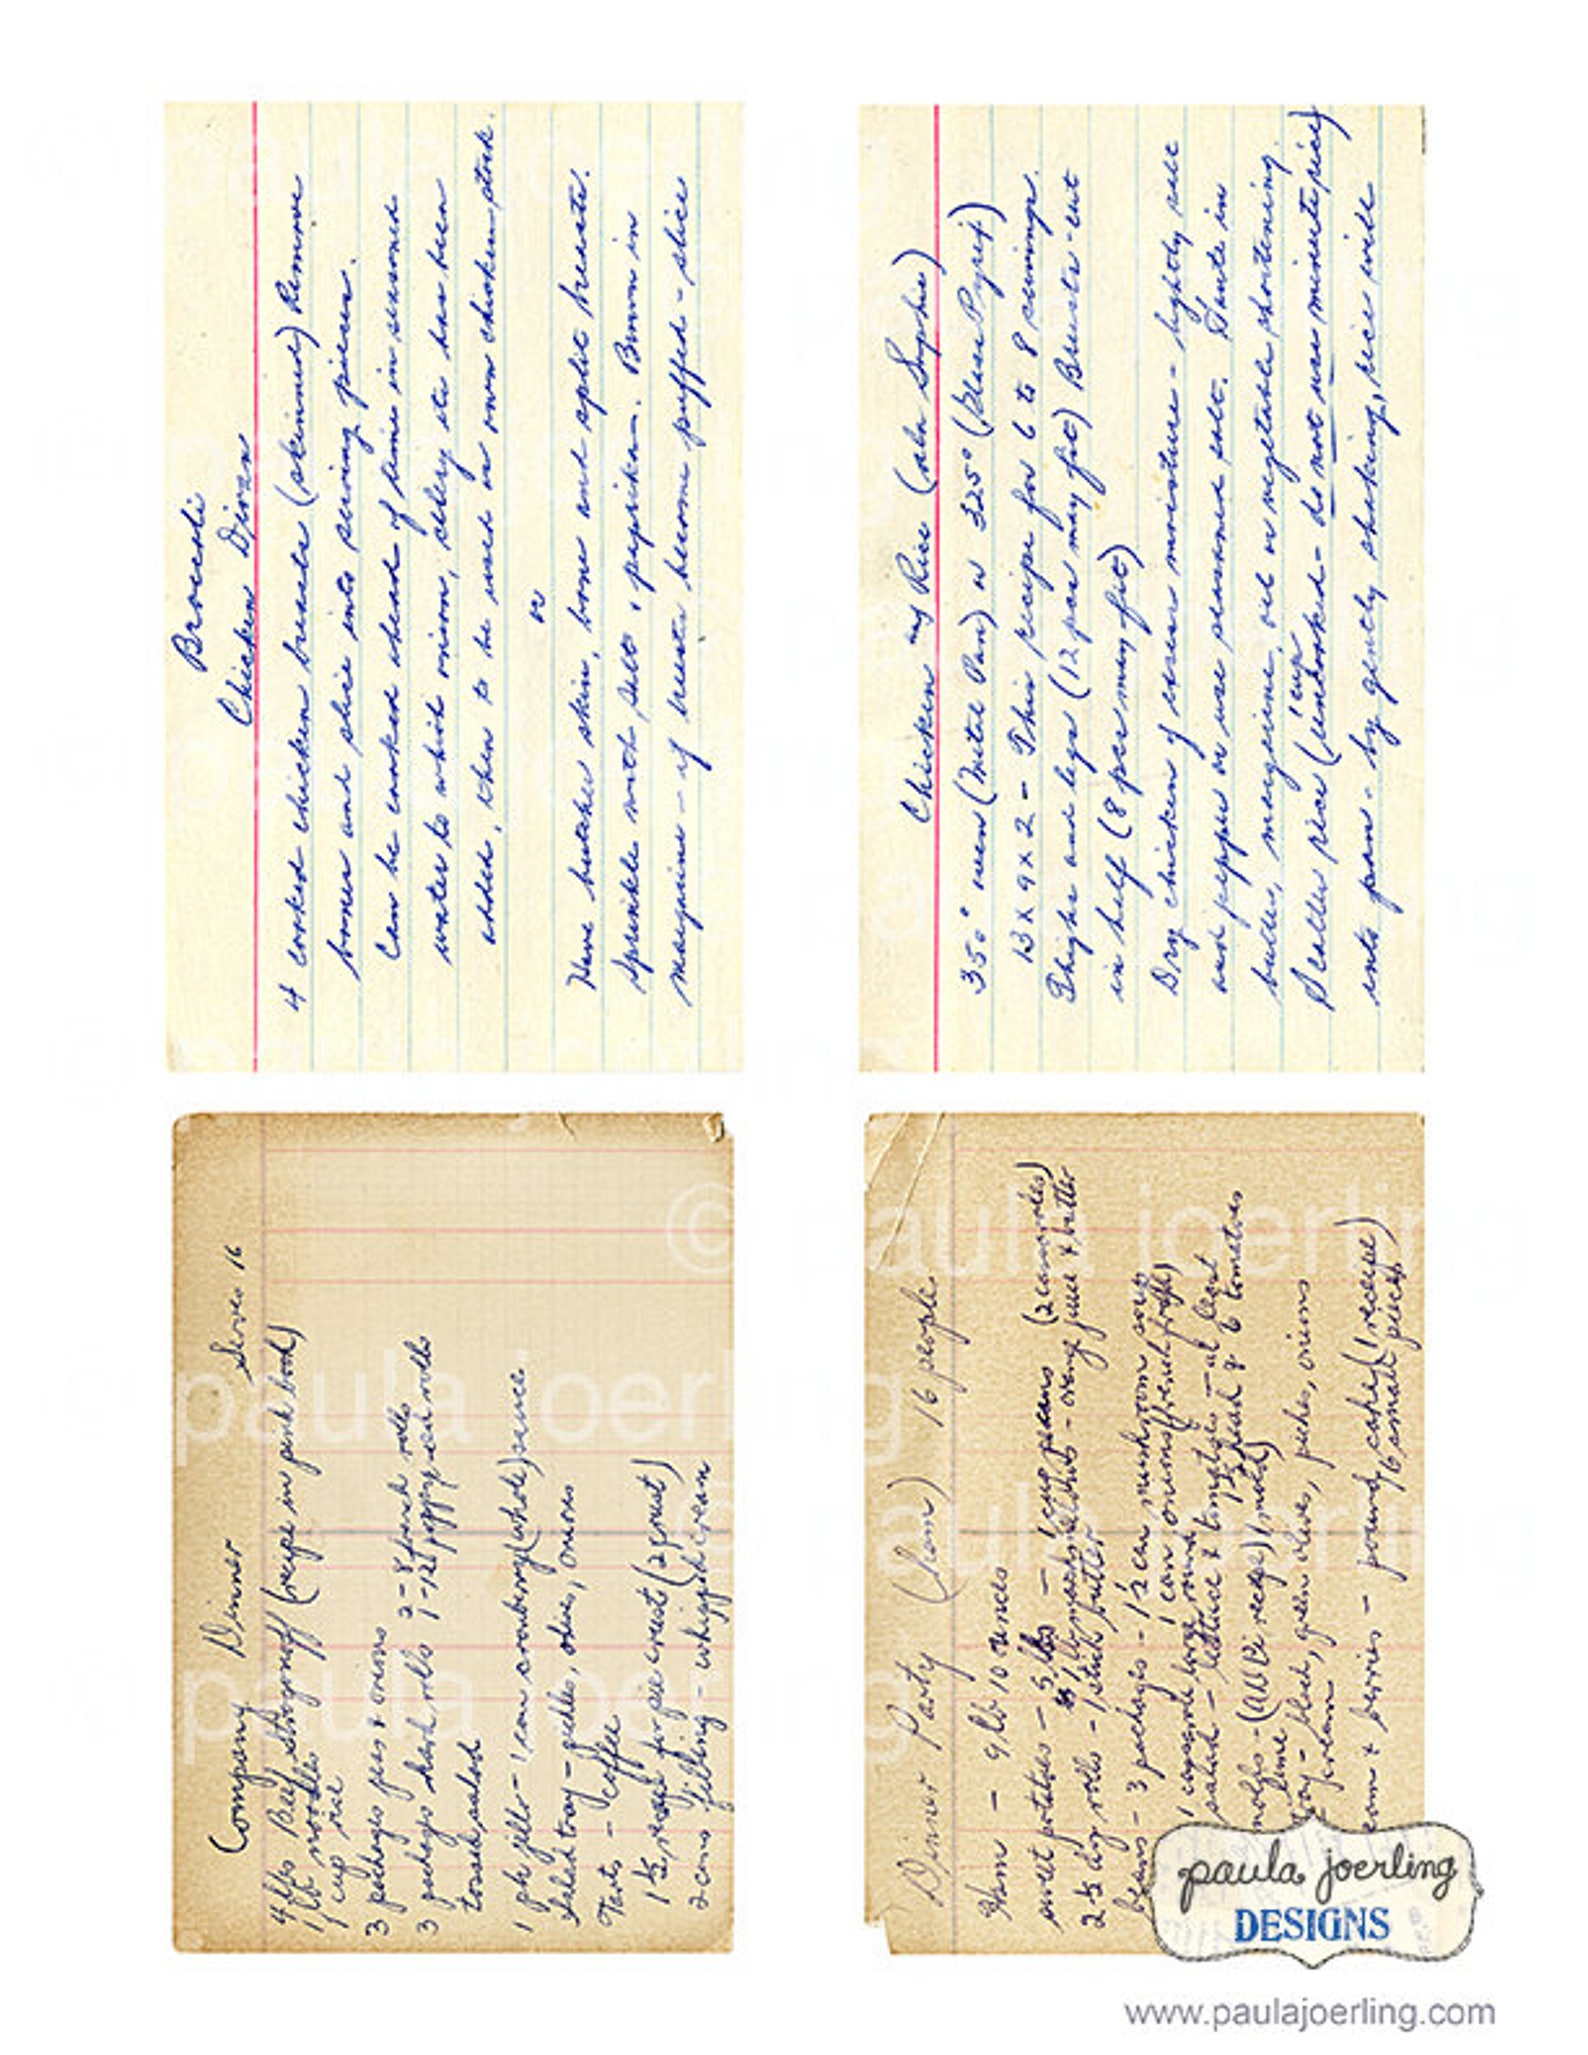 Broccoli
Chicken Divan
4 cooked chicken breasts (skinned) Remove
bones and slice into serving pieces.
Can be cooked ahead of time in seasoned
water to which onion, celery etc has been
added, then to be used as own chicken stock.
or
Have butcher skin, bone and split breasts.
Sprinkle with salt & paprika. Brown in
Margarine - if breasts become puffed - slice
Chicken and Rice (ala Sophie)
350° oven (Metal Pan) or 325° (Glass Pyrex)
13 x 9 x 2 - This recipe for 6 to 8 servings.
Thighs and legs (12 pcs may fit) Breasts - cut
in half (8 pcs may fit)
Dry chicken of excess moisture - lightly salt
and pepper or use seasoned salt. Saute in
butter, margarine, oil or vegetable shortening.
Scatter rice (1 cup uncooked - do not use minute rice)
into pan - by gently shaking, rice will
Company Dinner Serves 16
4 lbs Beef Stroganoff (recipe in pink book)
1 lb noodles
1 cup rice
3 packages peas & onions
3 packages hard rolls 2 - 8 french rolls
1 - 12 poppy seed rolls
tossed salad
1 pk jello - 1 can cranberry (whole) sauce
Salad tray - pickles, olives, onions
Tarts - coffee
1 1/2 recipe for pie crust (2 crust)
2 cans filling - whipped cream
Dinner Party (Ham) 16 people
Ham - 9 lb 10 ounces
sweet potatoes - 5 lbs - 1 cup pecans
orange juice & butter
2 1/2 dz rolls - 1 stick butter
beans - 3 packages - 1 1/2 can mushroom soup
1 can onions (french fried)
salad - lettuce & tomatoes - at least
1 1/2 head & 6 tomatoes
molds - recipe) 1 mold)
lime
tray - black, green olives, pickles, onions
cream
cream & berries - pound cake (1 recipe)
16 small pieces
© paula joerling
paula joerling
DESIGNS
www.paulajoerling.com